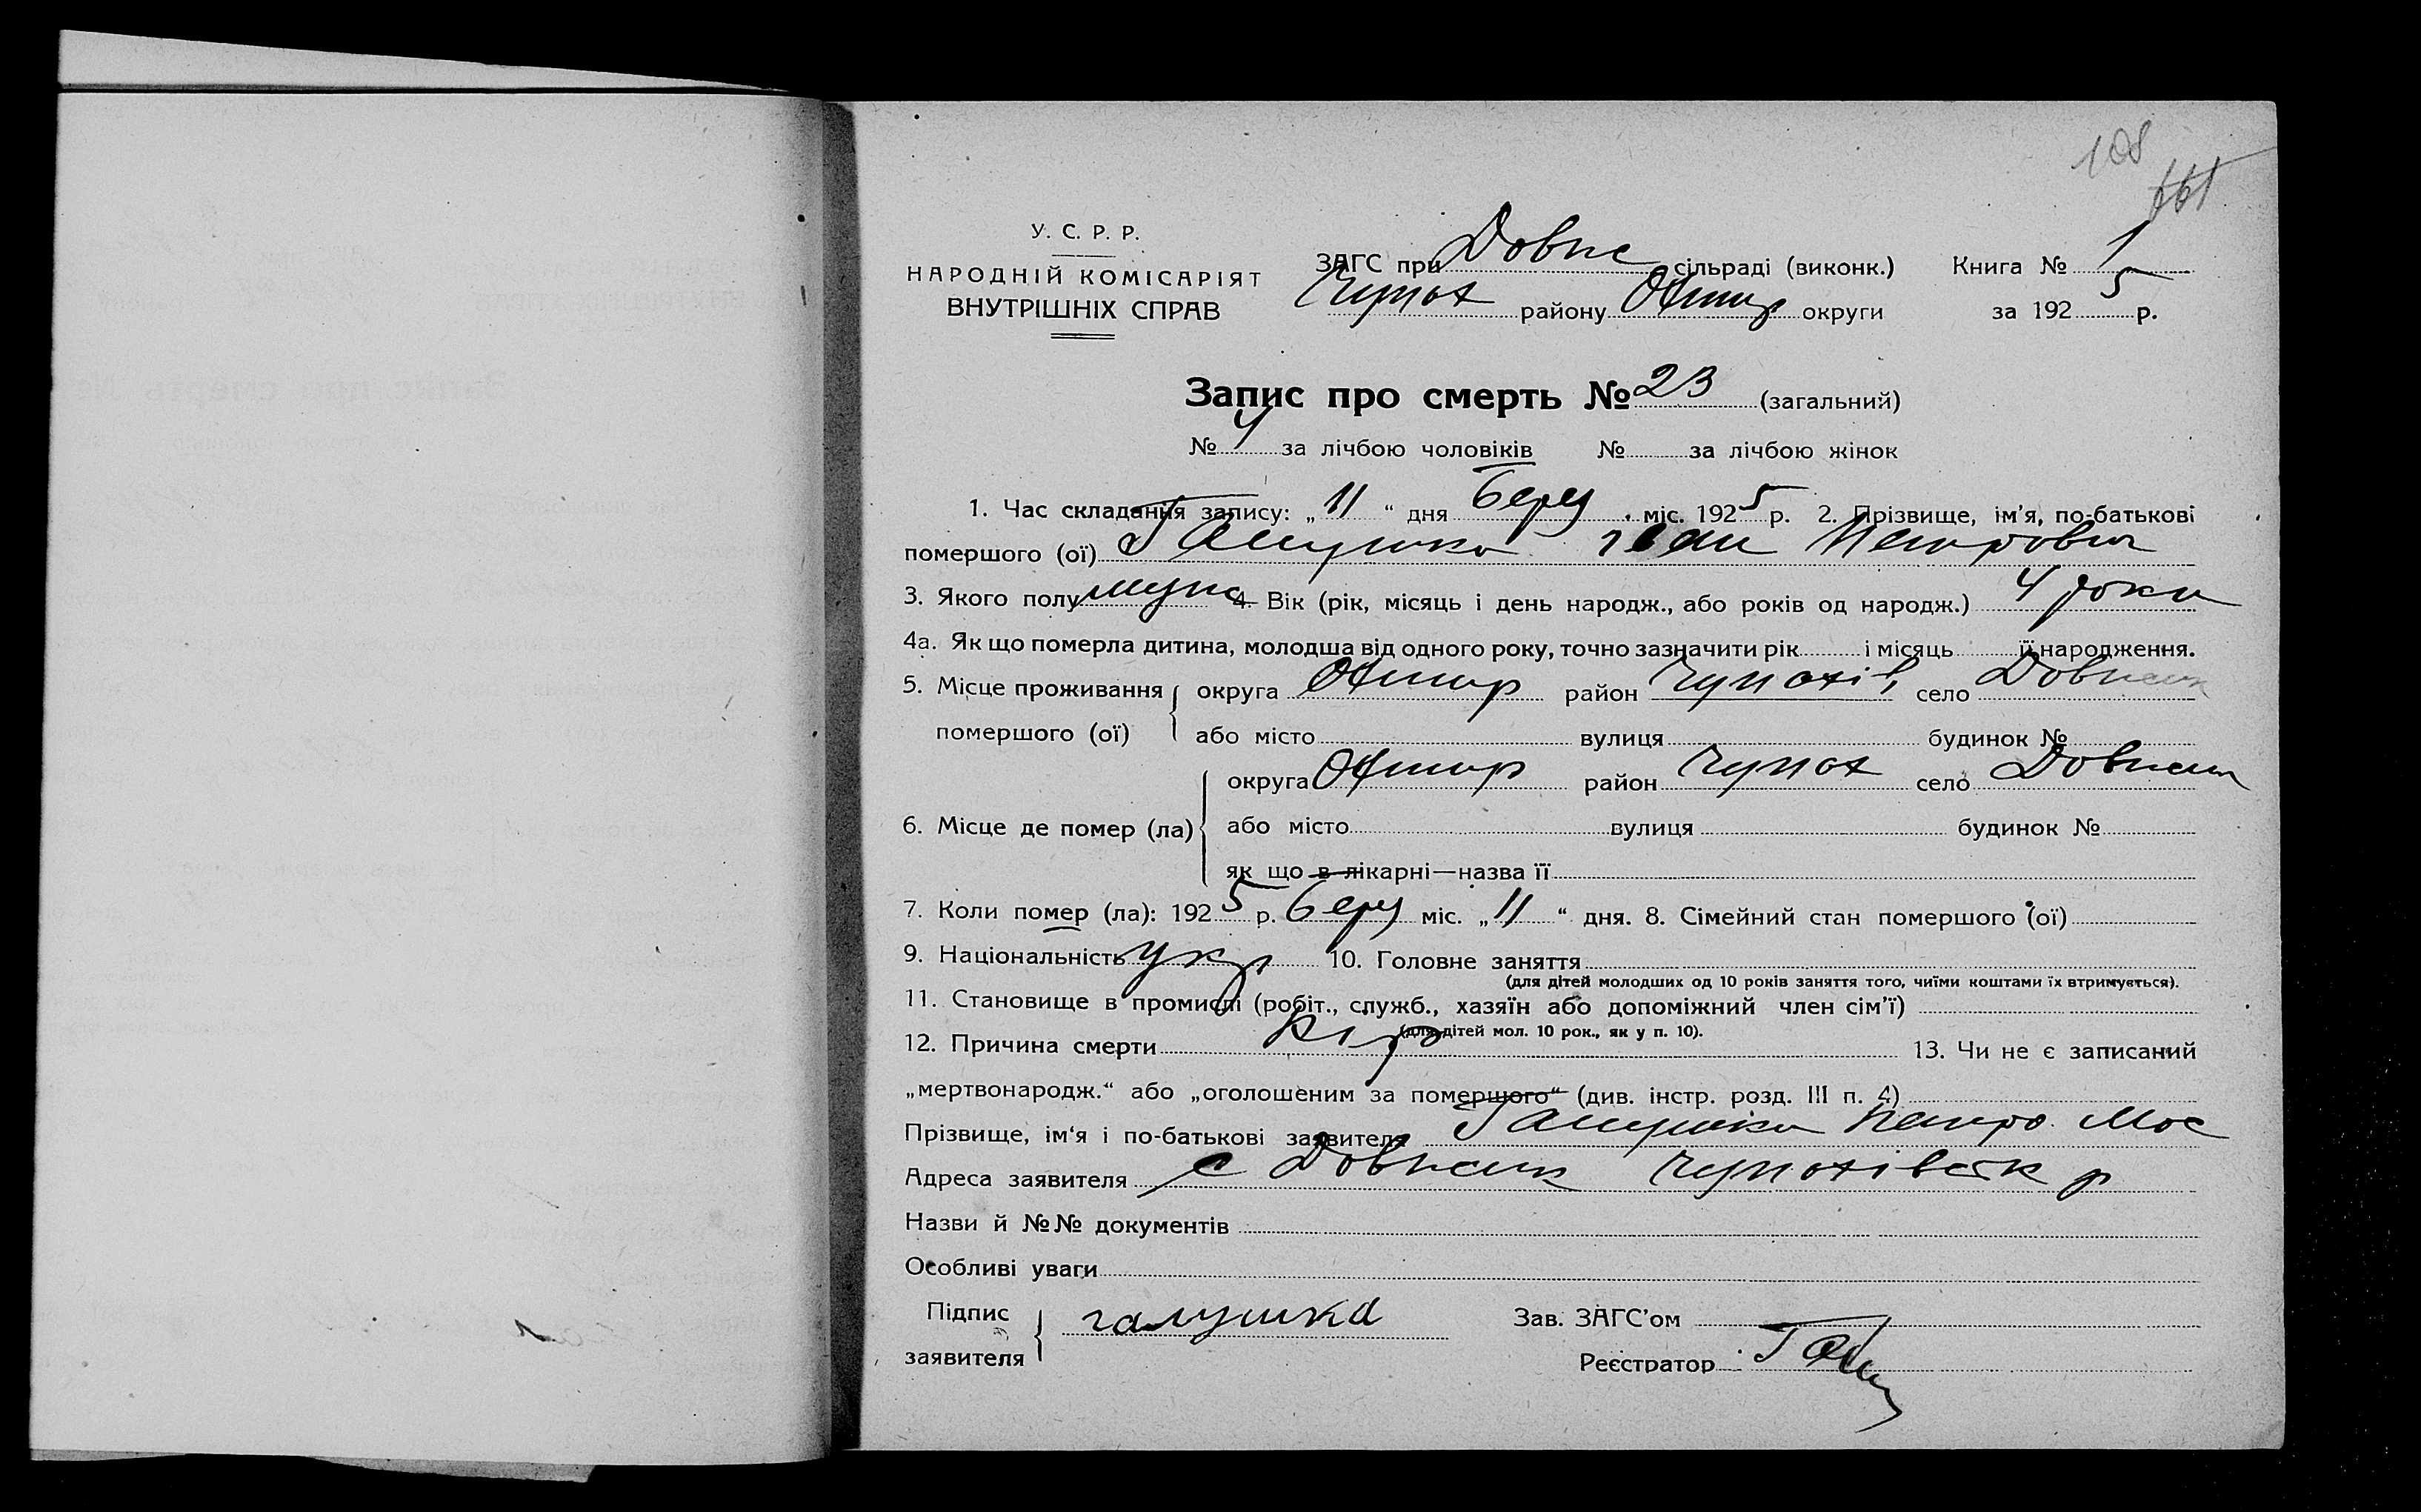 108
У. С. Р. Р.
НАРОДНІЙ КОМІСАРІЯТ
ВНУТРІШНІХ СПРАВ
ЗАГС при Довже сільраді (виконк.) Книга № 1
Чупах району Охтир округи за 1925 р.
Запис про смерть № 23 (загальний)
№ 4 за лічбою чоловіків № за лічбою жінок
1. Час складання запису: „ 11 “ дня Берез міс. 1925 р. 2. Прізвище, ім’я, по-батькові
помершого (ої) Галушка Іван Петрович
3. Якого полу муж 4. Вік (рік, місяць і день народж., або років од народж.) 4 роки
4а. Як що померла дитина, молодша від одного року, точно зазначити рік і місяць її народження.
5. Місце проживання помершого (ої) округа Охтир район Чупахів село Довжик
або місто вулиця будинок №
6. Місце де помер (ла) округа Охтир район Чупах село Довжик
або місто вулиця будинок №
як що в лікарні—назва її
7. Коли помер (ла): 1925 р. Берез міс. „ 11 “ дня. 8. Сімейний стан помершого (ої)
9. Національність укр 10. Головне заняття
(для дітей молодших од 10 років заняття того, чиїми коштами їх втримується).
11. Становище в промислі (робіт., служб., хазяїн або допоміжний член сім’ї)
(для дітей мол. 10 рок., як у п. 10).
12. Причина смерти Кір 13. Чи не є записаний
„мертвонародж.“ або „оголошеним за помершого“ (див. інстр. розд. III п. 4)
Прізвище, ім‘я і по-батькові заявителя Галушка Петро Мос
Адреса заявителя с Довжик Чупахівськ р
Назви й №№ документів
Особливі уваги
Підпис заявителя галушка
Зав. ЗАГС’ом
Реєстратор